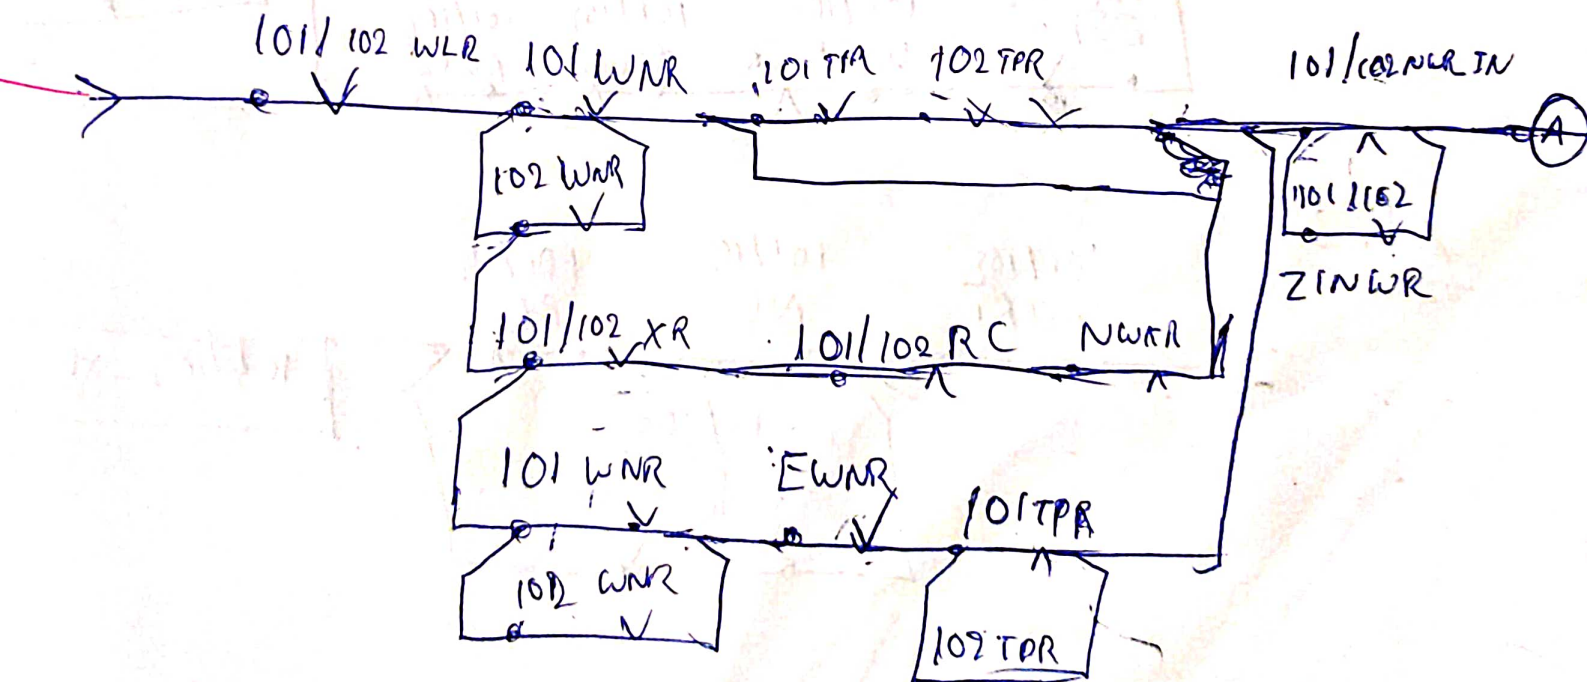 101/102 WLR
101 WNR
101 TPR
102 TPR
101/102 NWR IN
A
102 WNR
101/102
ZINWR
101/102 XR
101/102 R C
NWKR
101 WNR
EWNR
101TPR
102 WNR
102 TPR